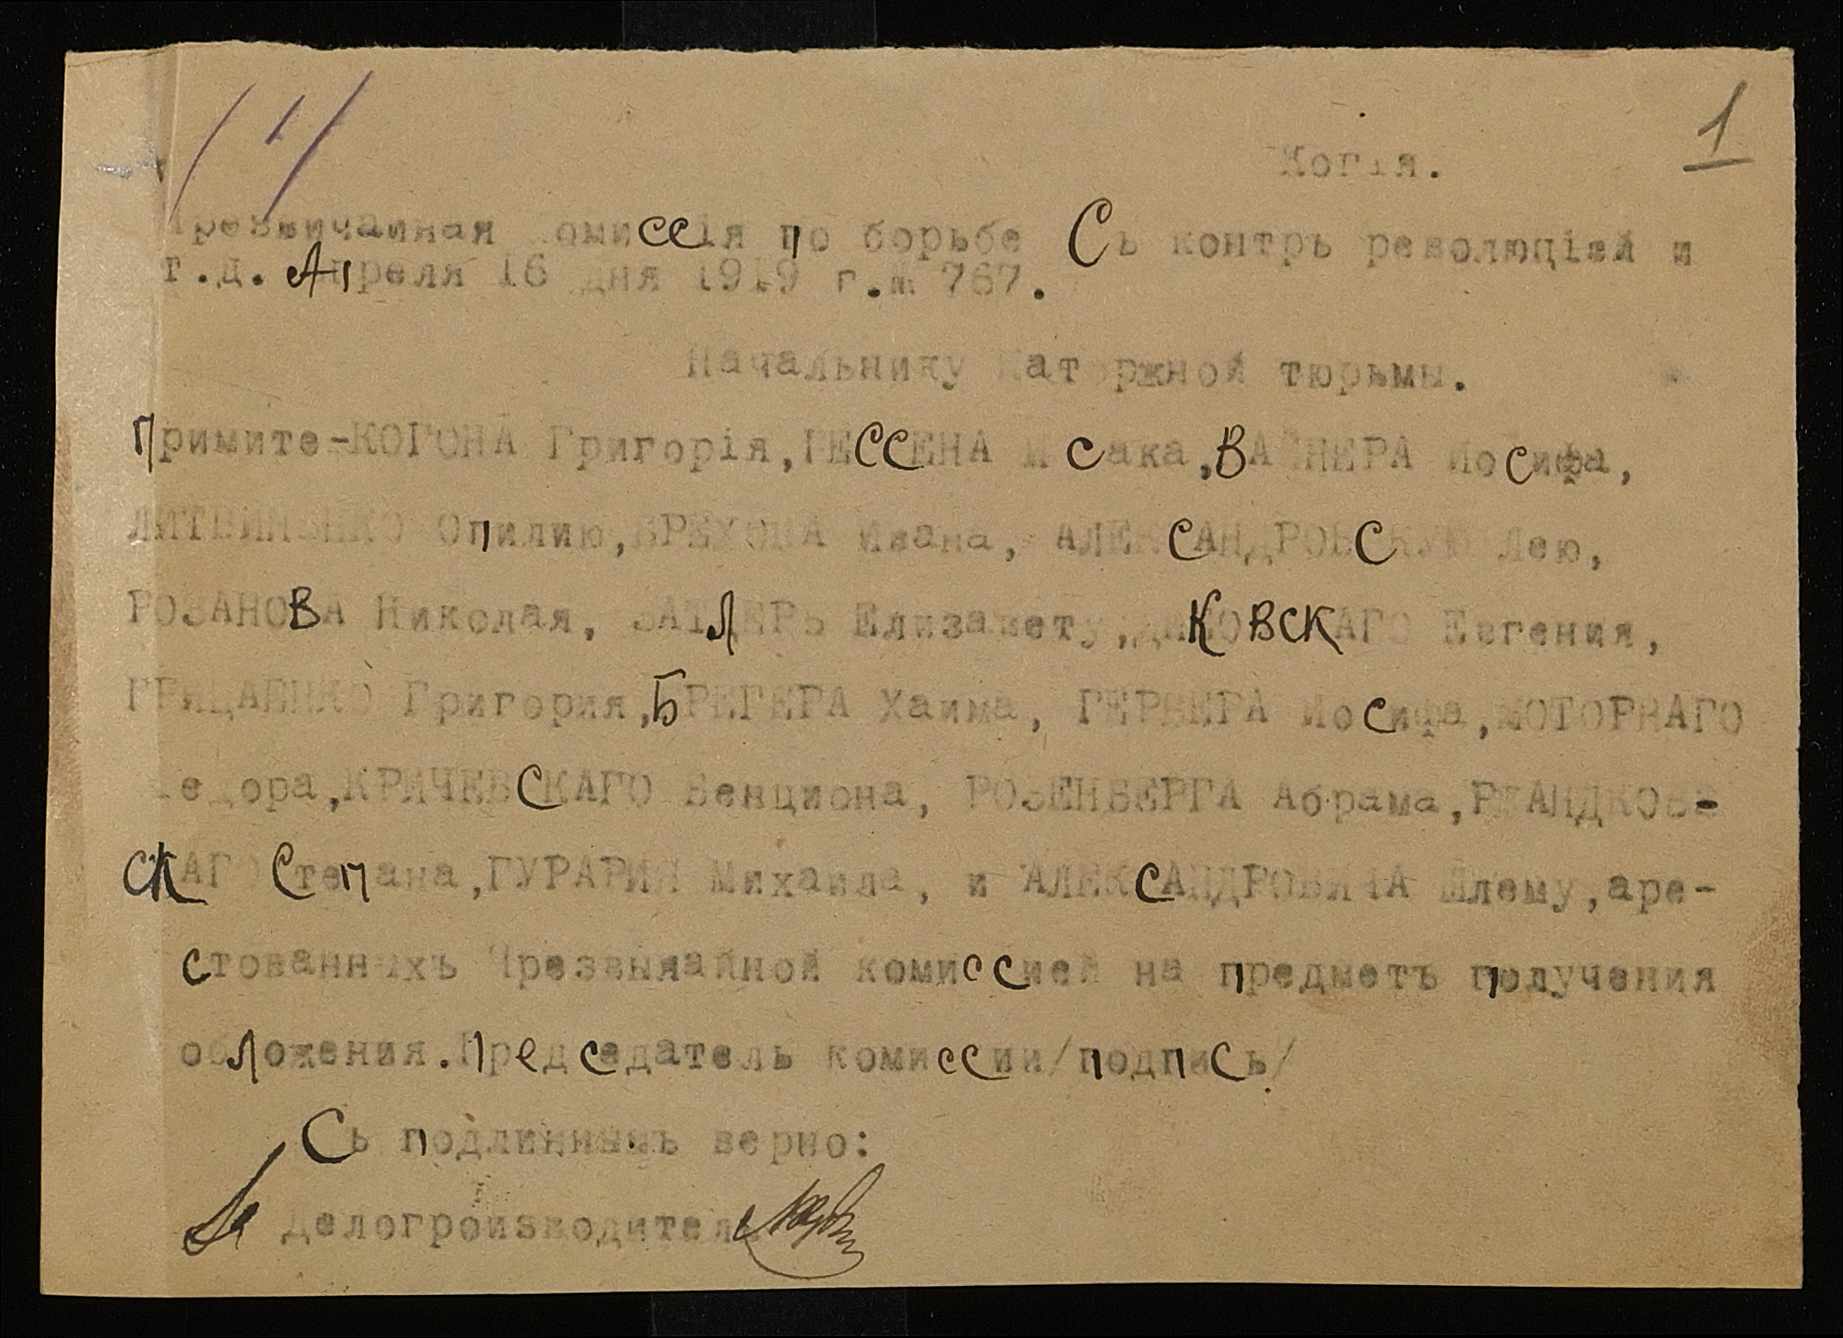 1
Копія.
Чрезвычайная комиссія по борьбе Съ контръ революціей и
т.д. Апреля 16 дня 1919 г.№ 767.
Начальнику Каторжной тюрьмы.
Примите-КОГОНА Григорія, ГЕССЕНА Исака, ВАЙНЕРА Иосифа,
ЛИТВИНЕНКО Опилию, БРЕХОВА Ивана, АЛЕКСАНДРОВСКУЮ Лею,
РОЗАНОВА Николая, Елизавету, Евгения,
ГРИЦАЕНКО Григория, БРЕГЕРА Хаима, ГЕРБЕРА Иосифа, МОТОРНАГО
Федора, КРИЧЕВСКАГО Бенциона, РОЗЕНБЕРГА Абрама,
СКАГО Степана, ГУРАРИЯ Михаила, и АЛЕКСАНДРОВИЧА Шлему, аре-
стованныхъ Чрезвыяайной комиссией на предметъ получения
обложения. Председатель комиссии /подпись/
Съ подлиннымъ верно:
Делопроизводитель